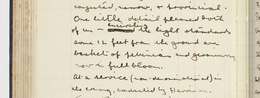 narrow, & provincial.
One little detail pleased both
of us — the light standards
some 12 feet from the ground are
baskets of petunias and geraniums
now in full bloom.
At a service (non-denominational) in
the evening, conducted by